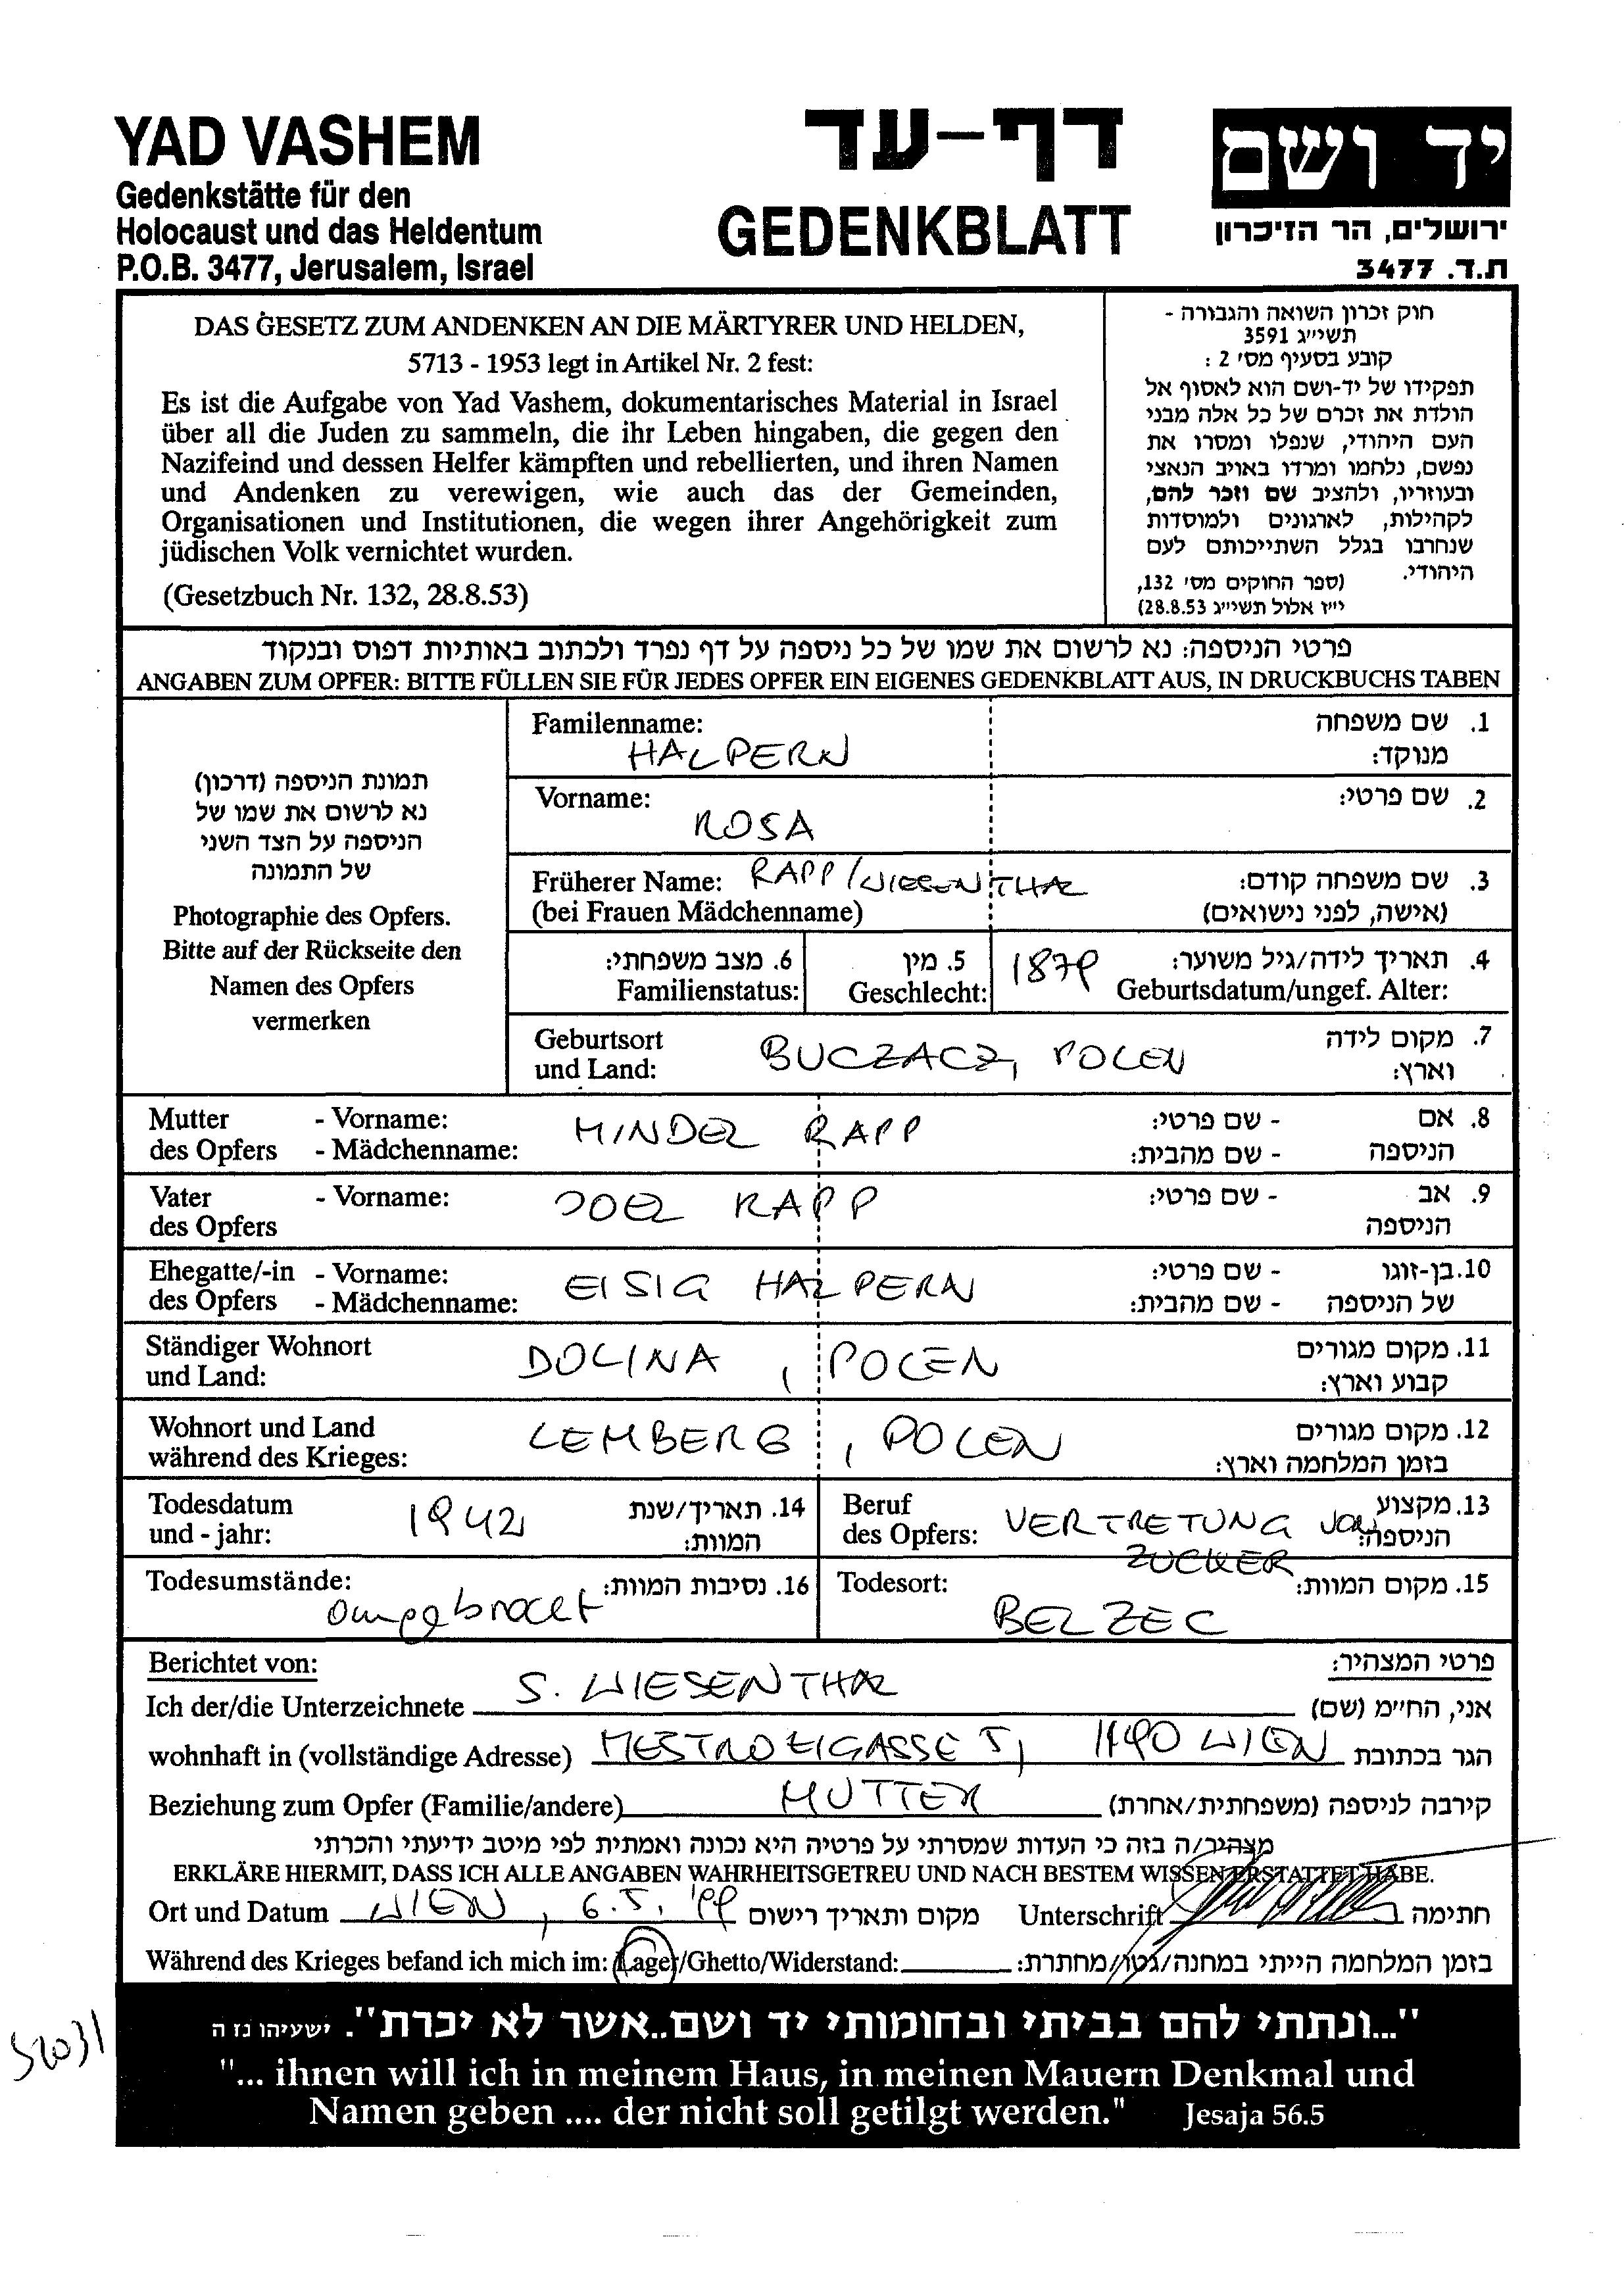 YAD VASHEM
Gedenkstätte für den
Holocaust und das Heldentum
P.O.B. 3477, Jerusalem, Israel
דף-עד
GEDENKBLATT
יד ושם
ירושלים, הר הזיכרון
ת.ד. 3477
DAS GESETZ ZUM ANDENKEN AN DIE MÄRTYRER UND HELDEN,
5713 - 1953 legt in Artikel Nr. 2 fest:
Es ist die Aufgabe von Yad Vashem, dokumentarisches Material in Israel
über all die Juden zu sammeln, die ihr Leben hingaben, die gegen den
Nazifeind und dessen Helfer kämpften und rebellierten, und ihren Namen
und Andenken zu verewigen, wie auch das der Gemeinden,
Organisationen und Institutionen, die wegen ihrer Angehörigkeit zum
jüdischen Volk vernichtet wurden.
(Gesetzbuch Nr. 132, 28.8.53)
חוק זכרון השואה והגבורה -
תשי"ג 3591
קובע בסעיף מס' 2 :
תפקידו של יד-ושם הוא לאסוף אל
הולדת את זכרם של כל אלה מבני
העם היהודי, שנפלו ומסרו את
נפשם, נלחמו ומרדו באויב הנאצי
ובעוזריו, ולהציב שם וזכר להם,
לקהילות, לארגונים ולמוסדות
שנחרבו בגלל השתייכותם לעם
היהודי.
(ספר החוקים מס' 132,
י"ז אלול תשי"ג 28.8.53)
פרטי הניספה: נא לרשום את שמו של כל ניספה על דף נפרד ולכתוב באותיות דפוס ובנקוד
ANGABEN ZUM OPFER: BITTE FÜLLEN SIE FÜR JEDES OPFER EIN EIGENES GEDENKBLATT AUS, IN DRUCKBUCHS TABEN
תמונת הניספה (דרכון)
נא לרשום את שמו של
הניספה על הצד השני
של התמונה
Photographie des Opfers.
Bitte auf der Rückseite den
Namen des Opfers
vermerken
Familenname: 1. שם משפחה
HALPERN מנוקד:
Vorname: 2. שם פרטי:
ROSA
Früherer Name: RAPP/WIESENTHAL 3. שם משפחה קודם:
(bei Frauen Mädchenname) (אישה, לפני נישואים)
6. מצב משפחתי: 5. מין 1879 4. תאריך לידה/גיל משוער:
Familienstatus: Geschlecht: Geburtsdatum/ungef. Alter:
Geburtsort BUCZACZ, POLEN 7. מקום לידה
und Land: וארץ:
Mutter - Vorname: MINDEL RAPP - שם פרטי: 8. אם
des Opfers - Mädchenname: - שם מהבית: הניספה
Vater - Vorname: JOEL RAPP - שם פרטי: 9. אב
des Opfers הניספה
Ehegatte/-in - Vorname: EISIG HALPERN - שם פרטי: 10. בן-זוגו
des Opfers - Mädchenname: - שם מהבית: של הניספה
Ständiger Wohnort DOLINA, POLEN 11. מקום מגורים
und Land: קבוע וארץ:
Wohnort und Land LEMBERG, POLEN 12. מקום מגורים
während des Krieges: בזמן המלחמה וארץ:
Todesdatum 1942 14. תאריך/שנת
und - jahr: המוות:
Beruf VERTRETUNG VON 13. מקצוע
des Opfers: ZUCKER הניספה:
Todesumstände: umgebracht 16. נסיבות המוות:
Todesort: BELZEC 15. מקום המוות:
Berichtet von: פרטי המצהיר:
Ich der/die Unterzeichnete S. WIESENTHAL אני, הח"מ (שם)
wohnhaft in (vollständige Adresse) MESTROZIGASSE 5, 1190 WIEN הגר בכתובת
Beziehung zum Opfer (Familie/andere) MUTTER קירבה לניספה (משפחתית/אחרת)
מצהיר/ה בזה כי העדות שמסרתי על פרטיה היא נכונה ואמתית לפי מיטב ידיעתי והכרתי
ERKLÄRE HIERMIT, DASS ICH ALLE ANGABEN WAHRHEITSGETREU UND NACH BESTEM WISSEN ERSTATTET HABE.
Ort und Datum WIEN, 6.5.'99 מקום ותאריך רישום Unterschrift חתימה
Während des Krieges befand ich mich im: Lager/Ghetto/Widerstand: בזמן המלחמה הייתי במחנה/גטו/מחתרת:
52031
"...ונתתי להם בביתי ובחומותי יד ושם..אשר לא יכרת". ישעיהו נז ה
"... ihnen will ich in meinem Haus, in meinen Mauern Denkmal und
Namen geben .... der nicht soll getilgt werden." Jesaja 56.5